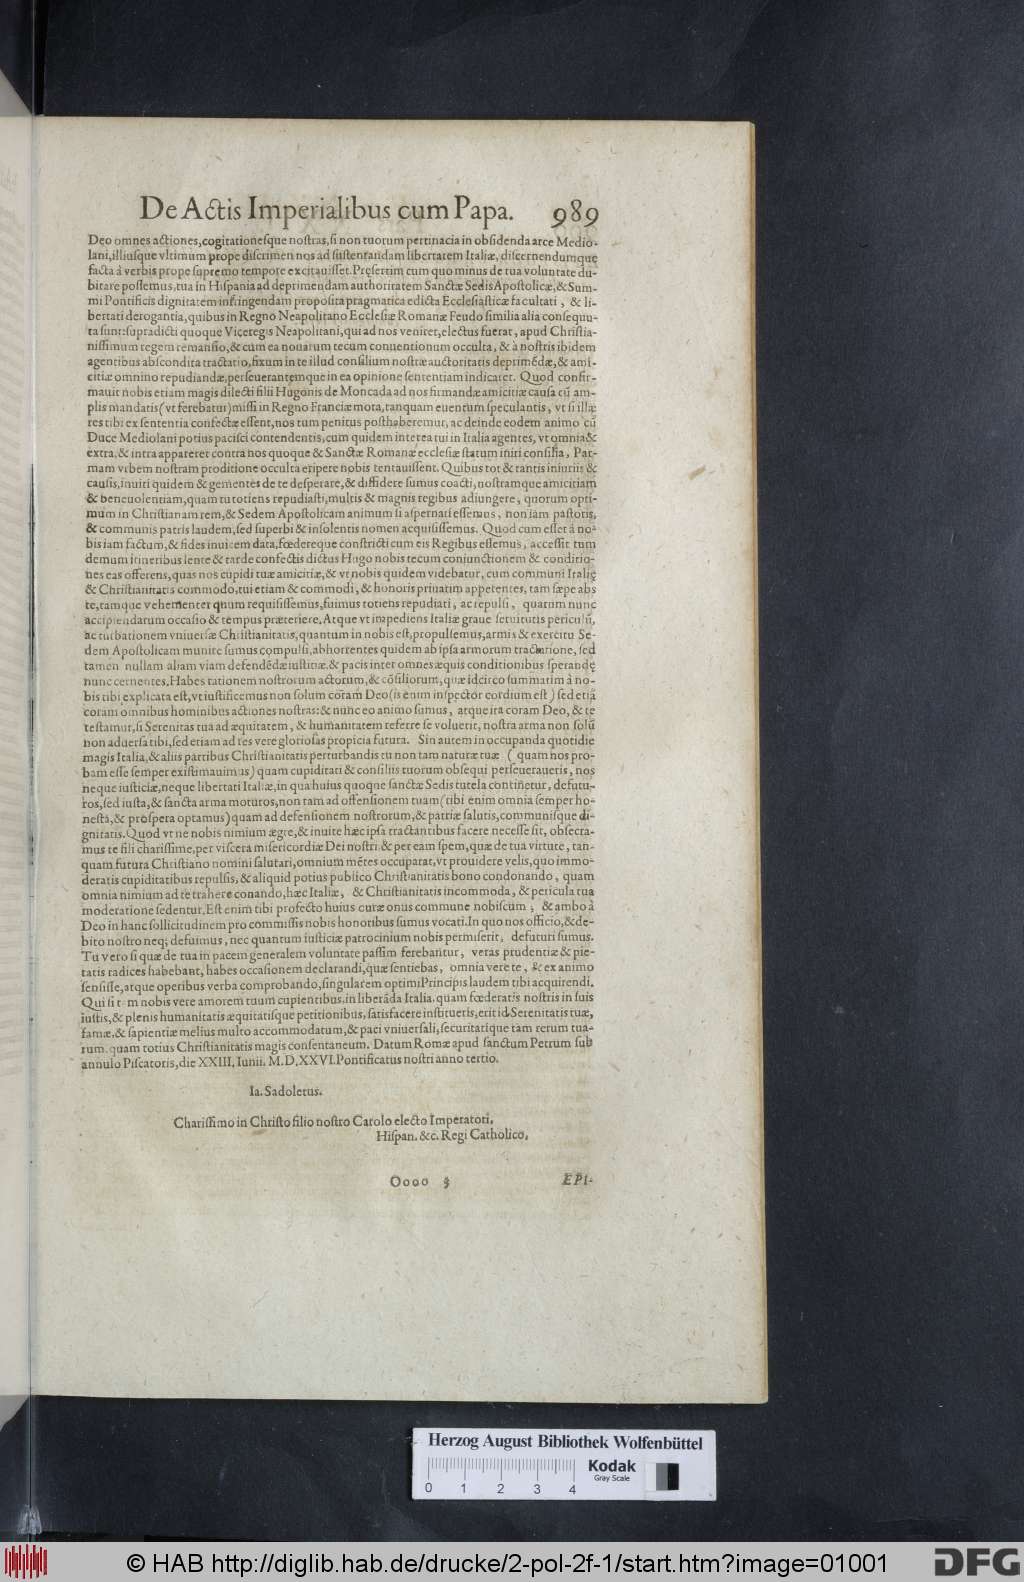 De Actis Imperialibus cum Papa. 989
Deo omnes actiones, cogitationesque nostras, si non tuorum pertinacia in obsidenda arce Medio-
lani, illiusque vltimum prope discrimen nos ad sustentandam libertatem Italiæ, discernendumque
facta à verbis prope supremo tempore excitauisset. Pręsertim cum quo minus de tua voluntate du-
bitare possemus, tua in Hispania ad deprimendam authoritatem Sanctæ Sedis Apostolicæ, & Sum-
mi Pontificis dignitatem infringendam proposita pragmatica edicta Ecclesiasticæ facultati, & li-
bertati derogantia, quibus in Regno Neapolitano Ecclesiæ Romanæ Feudo similia alia consequu-
ta sunt: supradicti quoque Viceregis Neapolitani, qui ad nos veniret, electus fuerat, apud Christia-
nissimum regem remansio, & cum ea nouarum tecum conuentionum occulta, & à nostris ibidem
agentibus abscondita tractatio, fixum in te illud consilium nostræ auctoritatis deprimẽdæ, & ami-
citiæ omnino repudiandæ, perseuerantemque in ea opinione sententiam indicaret. Quod confir-
mauit nobis etiam magis dilecti filii Hugonis de Moncada ad nos firmandæ amicitiæ causa cũ am-
plis mandatis (vt ferebatur) missi in Regno Franciæ mora, tanquam euentum speculantis, vt si illæ
res tibi ex sententia confectæ essent, nos tum penitus posthaberemur, ac deinde eodem animo cũ
Duce Mediolani potius pacisci contendentis, cum quidem interea tui in Italia agentes, vt omnia &
extra, & intra appareret contra nos quoque & Sanctæ Romanæ ecclesiæ statum iniri consilia, Par-
mam vrbem nostram proditione occulta eripere nobis tentauissent. Quibus tot & tantis iniuriis &
causis, inuiti quidem & gementes de te desperare, & diffidere sumus coacti, nostramque amicitiam
& beneuolentiam, quam tu totiens repudiasti, multis & magnis regibus adiungere, quorum opti-
mum in Christianam rem, & Sedem Apostolicam animum si aspernati essemus, non iam pastoris,
& communis patris laudem, sed superbi & insolentis nomen acquisissemus. Quod cum esset à no-
bis iam factum, & fides inuicem data, fœdereque constricti cum eis Regibus essemus, accessit tum
demum itineribus lente & tarde confectis dictus Hugo nobis tecum coniunctionem & conditio-
nes eas offerens, quas nos cupidi tuæ amicitiæ, & vt nobis quidem videbatur, cum communi Italię
& Christianitatis commodo, tui etiam & commodi, & honoris priuatim appetentes, tam sæpe abs
te, tamque vehementer quum requisissemus, fuimus totiens repudiati, ac repulsi, quarum nunc
accipiendarum occasio & tempus præteriere. Atque vt impediens Italiæ graue seruitutis periculũ,
ac turbationem vniuersæ Christianitatis, quantum in nobis est, propulsemus, armis & exercitu Se-
dem Apostolicam munire sumus compulsi, abhorrentes quidem ab ipsa armorum tractatione, sed
tamen nullam aliam viam defendẽdæ iustitiæ, & pacis inter omnes æquis conditionibus sperandę
nunc cernentes. Habes rationem nostrorum actorum, & cõsiliorum, quæ idcirco summatim à no-
bis tibi explicata est, vt iustificemus non solum coram Deo (is enim inspector cordium est) sed etiã
coram omnibus hominibus actiones nostras: & nunc eo animo sumus, atque ita coram Deo, & te
testamur, si Serenitas tua ad æquitatem, & humanitatem referre se voluerit, nostra arma non solũ
non aduersa tibi, sed etiam ad res vere gloriosas propicia futura. Sin autem in occupanda quotidie
magis Italia, & aliis partibus Christianitatis perturbandis tu non tam naturæ tuæ (quam nos pro-
bam esse semper existimauimus) quam cupiditati & consiliis tuorum obsequi perseueraueris, nos
neque iusticiæ, neque libertati Italiæ, in qua huius quoque sanctæ Sedis tutela continetur, defutu-
ros, sed iusta, & sancta arma moturos, non tam ad offensionem tuam (tibi enim omnia semper ho-
nesta, & prospera optamus) quam ad defensionem nostrorum, & patriæ salutis, communisque di-
gnitatis. Quod vt ne nobis nimium ægre, & inuite hæc ipsa tractantibus facere necesse sit, obsecra-
mus te fili charissime, per viscera misericordiæ Dei nostri & per eam spem, quæ de tua virtute, tan-
quam futura Christiano nomini salutari, omnium mẽtes occuparat, vt prouidere velis, quo immo-
deratis cupiditatibus repulsis, & aliquid potius publico Christianitatis bono condonando, quam
omnia nimium ad te trahere conando, hæc Italiæ, & Christianitatis incommoda, & pericula tua
moderatione sedentur. Est enim tibi profecto huius curæ onus commune nobiscum, & ambo à
Deo in hanc sollicitudinem pro commissis nobis honoribus sumus vocati. In quo nos officio, & de-
bito nostro neq; defuimus, nec quantum iusticiæ patrocinium nobis permiserit, defuturi sumus.
Tu vero si quæ de tua in pacem generalem voluntate passim ferebantur, veras prudentiæ & pie-
tatis radices habebant, habes occasionem declarandi, quæ sentiebas, omnia vere te, & ex animo
sensisse, atque operibus verba comprobando, singularem optimi Principis laudem tibi acquirendi.
Qui si tam nobis vere amorem tuum cupientibus, in liberãda Italia, quam fœderatis nostris in suis
iustis, & plenis humanitatis æquitatisque petitionibus, satisfacere institueris, erit id Serenitatis tuæ,
famæ, & sapientiæ melius multo accommodatum, & paci vniuersali, securitatique tam rerum tua-
rum, quam totius Christianitatis magis consentaneum. Datum Romæ apud sanctum Petrum sub
annulo Piscatoris, die XXIII. Iunii. M.D.XXVI. Pontificatus nostri anno tertio.
Ia. Sadoletus.
Charissimo in Christo filio nostro Carolo electo Imperatori,
Hispan. &c. Regi Catholico,
Oooo § EPI-
Herzog August Bibliothek Wolfenbüttel
Kodak
Gray Scale
0 1 2 3 4
© HAB http://diglib.hab.de/drucke/2-pol-2f-1/start.htm?image=01001
DFG